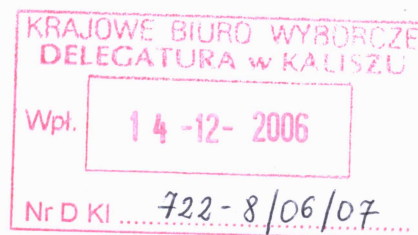 KRAJOWE BIURO WYBORCZE
DELEGATURA w KALISZU
Wpł. 14 -12- 2006
Nr D Kl ..... 722-8/06/07